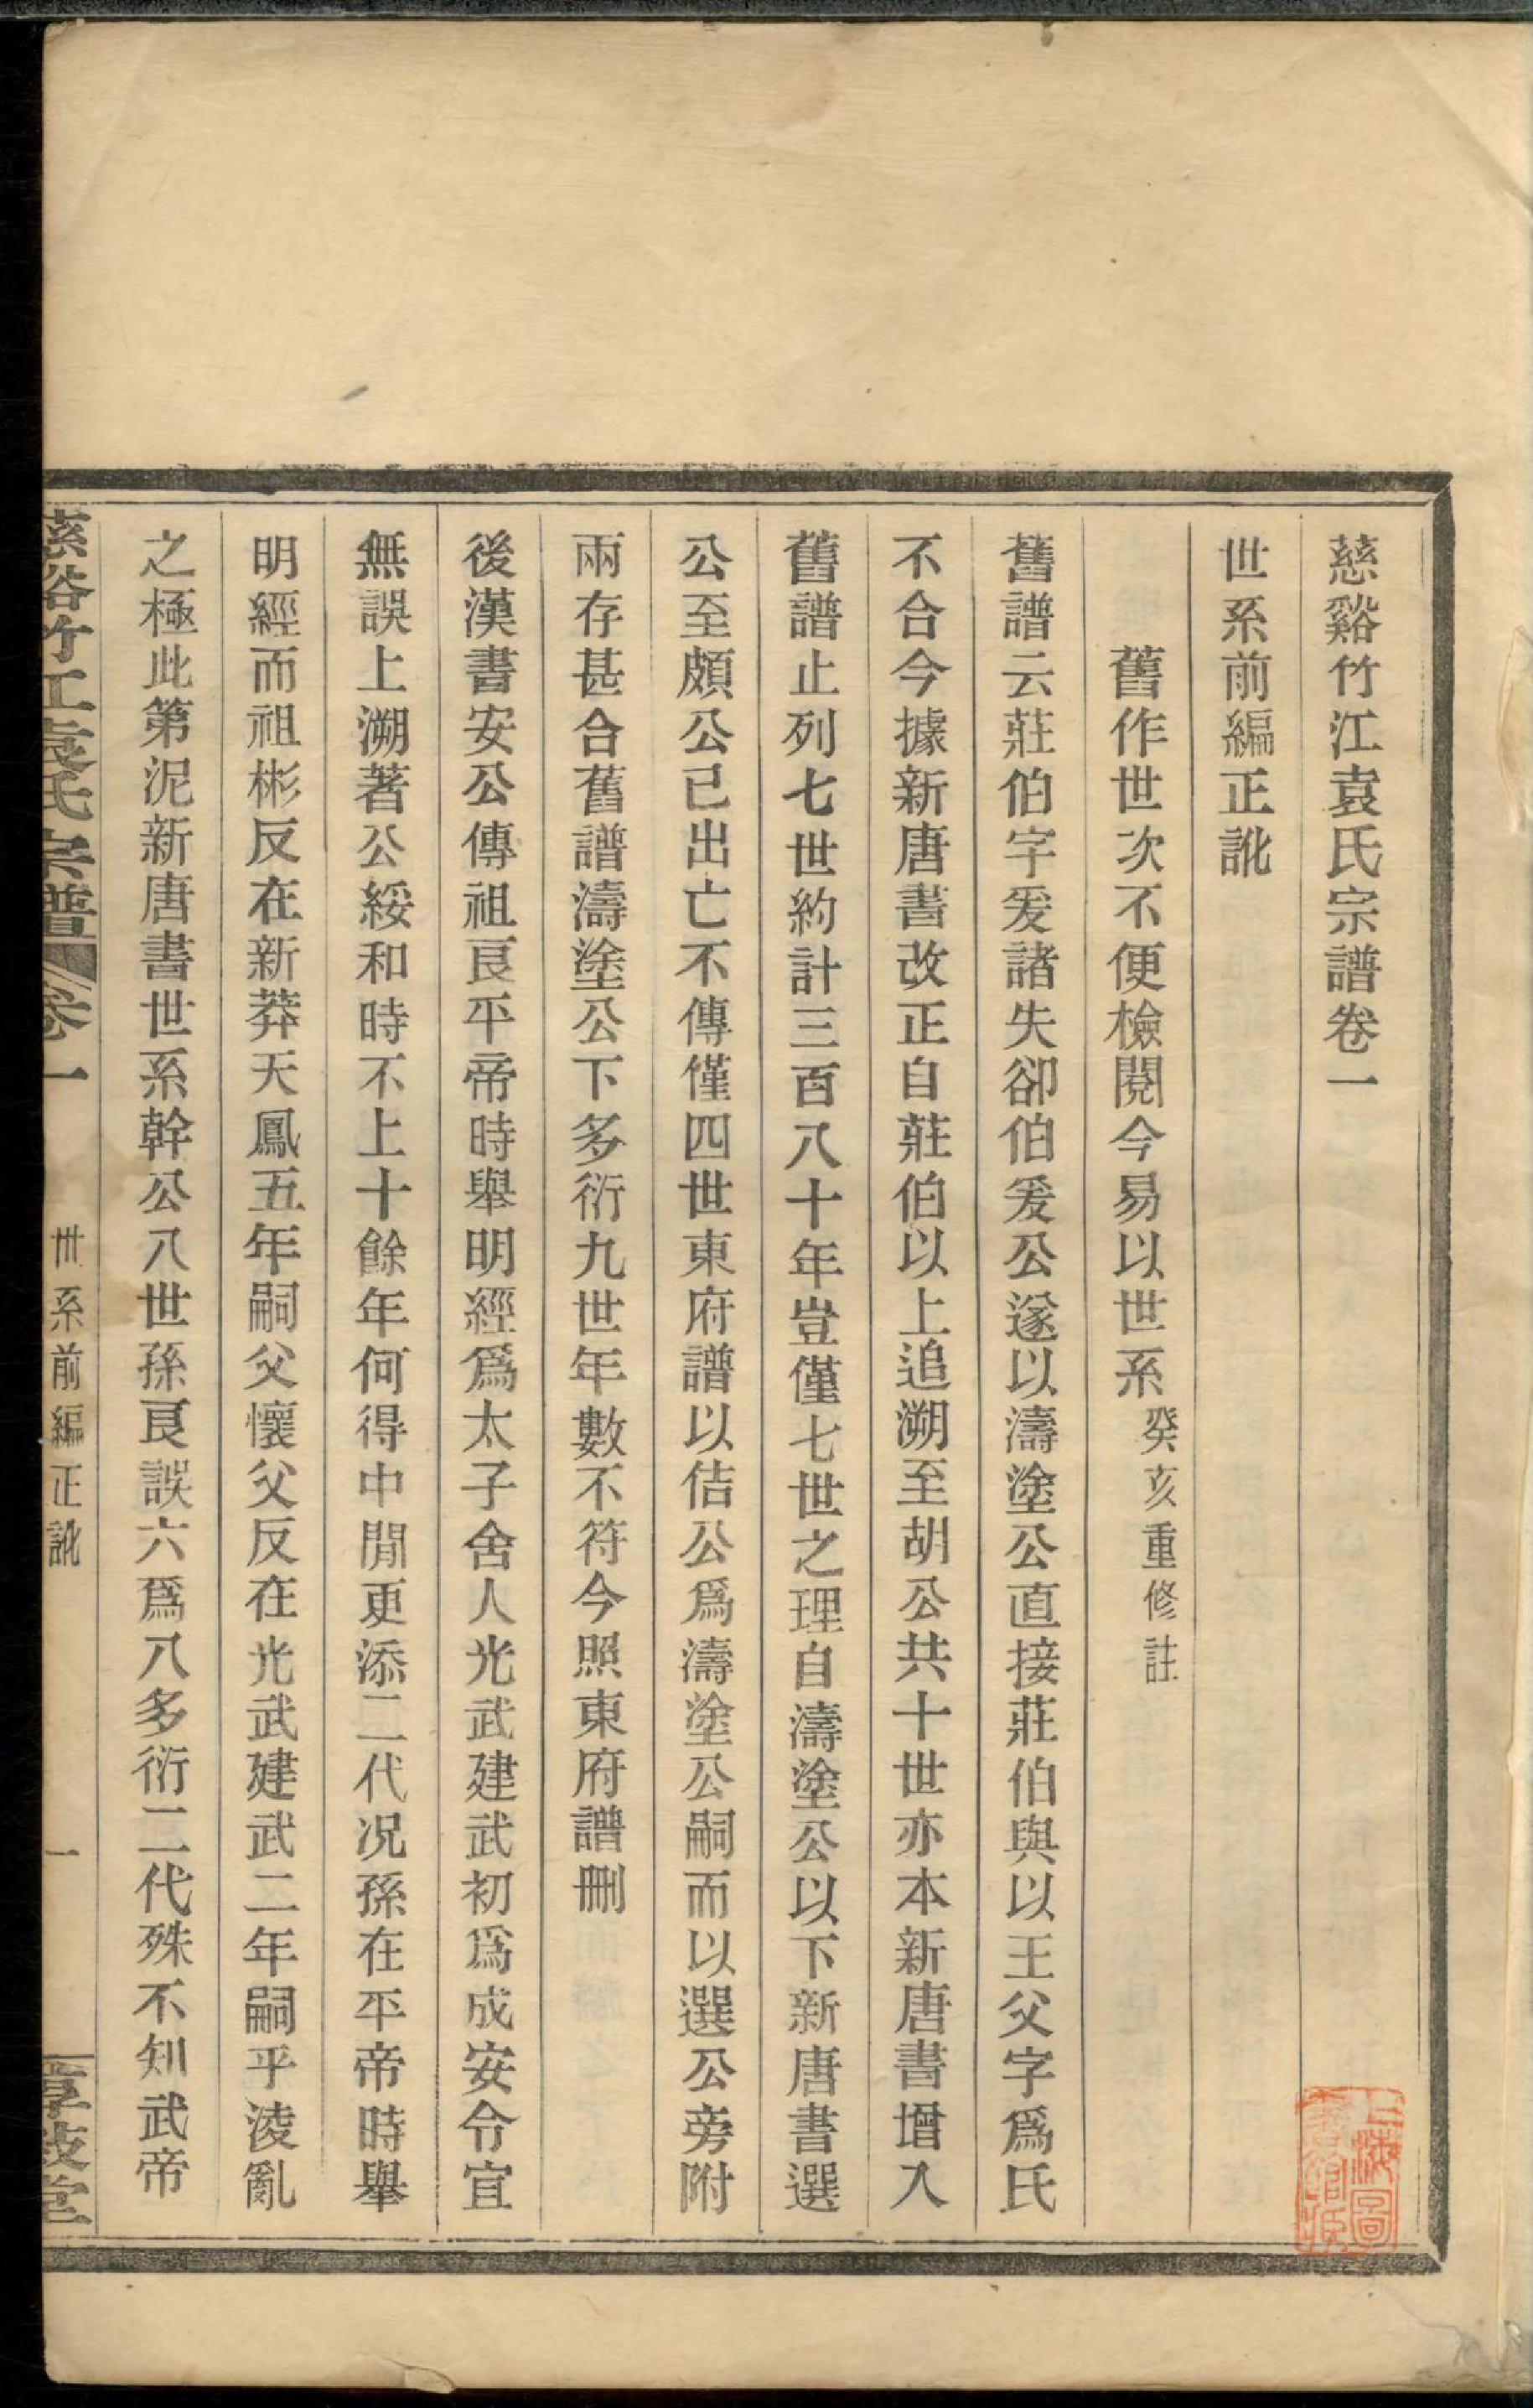 慈谿竹江袁氏宗譜卷一
世系前編正訛
舊作世次不便檢閱今易以世系癸亥重修註
舊譜云莊伯字爰諸失卻伯爰公遂以濤塗公直接莊伯與以王父字爲氏
不合今據新唐書改正自莊伯以上追溯至胡公共十世亦本新唐書增入
舊譜止列七世約計三百八十年豈僅七世之理自濤塗公以下新唐書選
公至頗公已出亡不傳僅四世東府譜以佶公爲濤塗公嗣而以選公旁附
兩存甚合舊譜濤塗公下多衍九世年數不符今照東府譜刪
後漢書安公傳祖良平帝時舉明經爲太子舍人光武建武初爲成安令宜
無誤上溯著公綏和時不上十餘年何得中間更添二代况孫在平帝時舉
明經而祖彬反在新莽天鳳五年嗣父懷父反在光武建武二年嗣乎淩亂
之極此第泥新唐書世系幹公八世孫良誤六爲八多衍二代殊不知武帝
慈谿竹江袁氏宗譜 卷一 世系前編正訛 一
上海圖書館藏